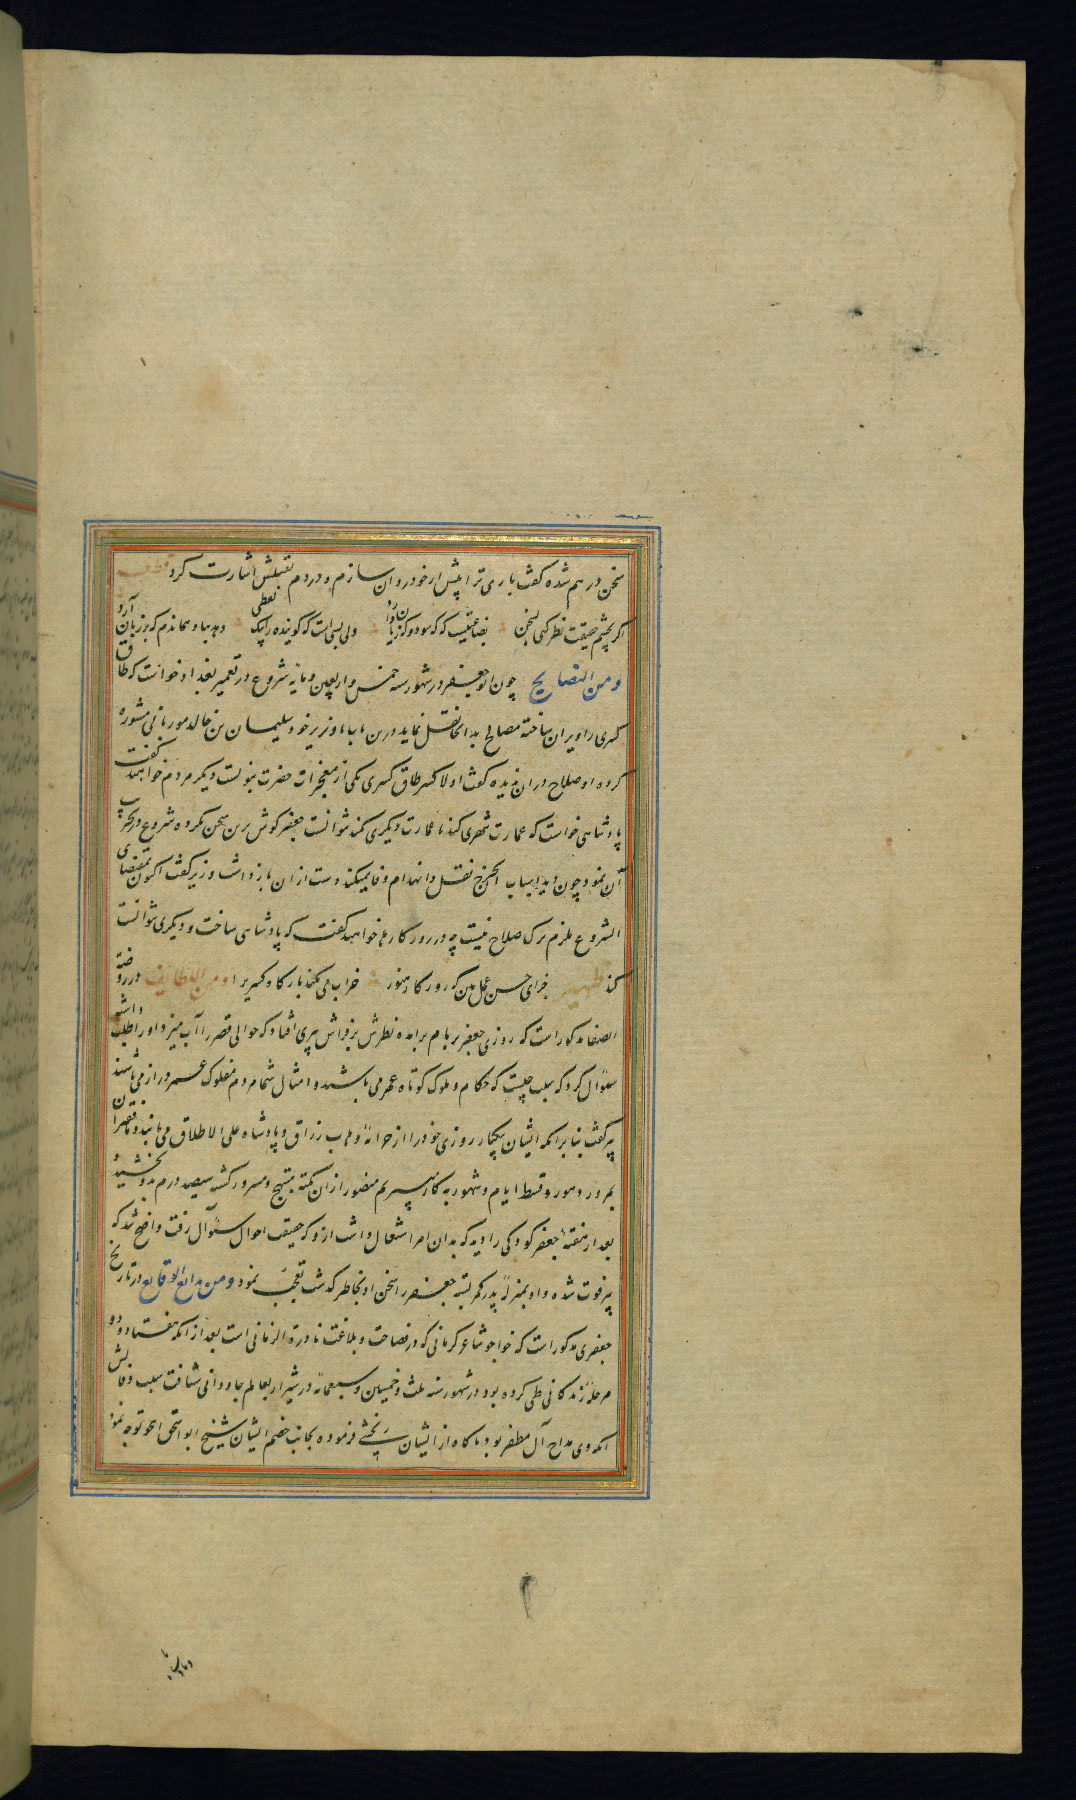 سخن در هم شده گفت باری ترا پیش از خود روان سازم و در دم بقتلش اشارت کرد قطعه
اگر بچشم حقیقت نظر کنی بسخن بضاعتیست که که سود و که زیان دارد ولی بسی است که گوینده را بیک نقطی دهد بباد هماندم که بر زبان آرد
ومن النصایح چون ابو جعفر در شهور سنه خمس و اربعین و مایه شروع در تعمیر بغداد خواست که طاق
کسری را ویران ساخته مصالح بدانجا نقل نماید درین باب با وزیر خود سلیمان بن خالد موریانی مشوره
کرده او صلاح در ان ندیده گفت اولا کسر طاق کسری یکی از معجزات حضرت نبویست دیگر مردم خواهند گفت
پادشاهی خواست که عمارت شهری کند تا عمارت دیگری نکند نتوانست جعفر گوش برین سخن نکرده شروع در تخریب
آن نمود و چون دید اسباب الخرج نقل و انهدام وفا نمیکند دست از ان باز داشت وزیر گفت اکنون بمقتضای
الشروع ملزم ترک صلاح نیست چه در روزگارها خواهند گفت که پادشاهی ساخت و دیگری نتوانست
کند ظهیر جزای حسن عمل بین که روزگار هنوز خراب می نکند بارگاه کسری را ومن اللطایف در روضة
الصفا مذکور است که روزی جعفر بر بام برآمده نظرش بر فراش پیری افتاد که حوالی قصر را آب میزد او را طلب داشته
سؤال کرد که سبب چیست که حکام و ملوک کوتاه عمر می باشند و امثال شما مردم مفلوک عمر دراز می باشند
پیر گفت بنا بر انکه ایشان بیکبار روزی خود را از خزانهٔ وهاب رزاق و پادشاه علی الاطلاق می یابند و ما فقیران
بمرور دهور و قسط ایام و شهور به کار میبریم منصور از ان نکته مبتهج و مسرور گشته سیصد درم بدو بخشید و
بعد از هفتهٔ جعفر کودکی را دید که بدان امر اشتغال داشت ازو که حقیقت احوال سؤال رفت واضح شد که
پیر فوت شده و او بمنزلهٔ پدر کمر بسته جعفر را سخن او بخاطر گذشت تعجب نمود ومن بدایع الوقایع در تاریخ
جعفری مذکور است که خواجو شاعر کرمانی که در فصاحت و بلاغت نادرة الزمانی است بعد از انکه هفتاد و دو
مرحلهٔ زندگانی طی کرده بود در شهور سنه ثلث و خمسین و سبعمائه در شیراز بعالم جاودانی شتافت سبب وفاتش
انکه وی مداح آل مظفر بود ناگاه از ایشان رنجشی فرموده بجانب خصم ایشان شیخ ابو اسحق انجو توجه نمود